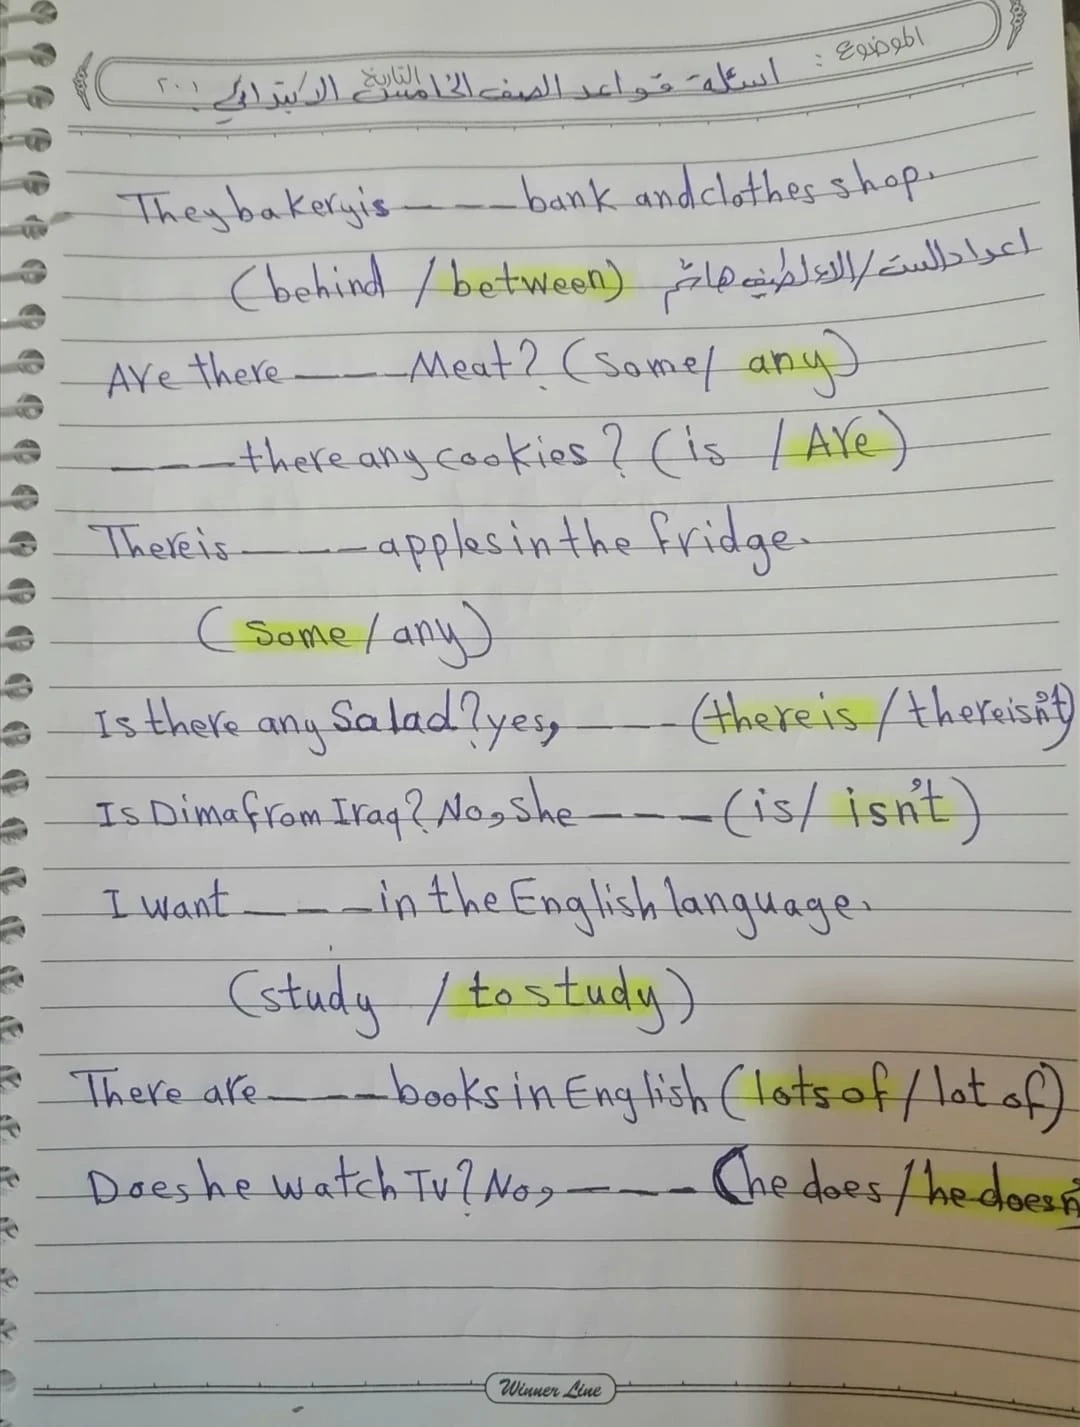 الموضوع :
اسئلة قواعد الصف الخامس الابتدائي
التاريخ ٢٠١
They bakery is ---- bank and clothes shop.
(behind / between) اعداد الست/الاء لطيف هاشم
Are there ---- Meat? (Some/ any)
---- there any cookies? (is / Are)
There is ---- apples in the fridge.
(Some / any)
Is there any Salad? yes, ---- (there is / there isn't)
Is Dima from Iraq? No, She ---- (is/ isn't)
I want ---- in the English language.
(study / to study)
There are ---- books in English (lots of / lot of)
Does he watch TV? No, ---- (he does / he doesn
Winner Line